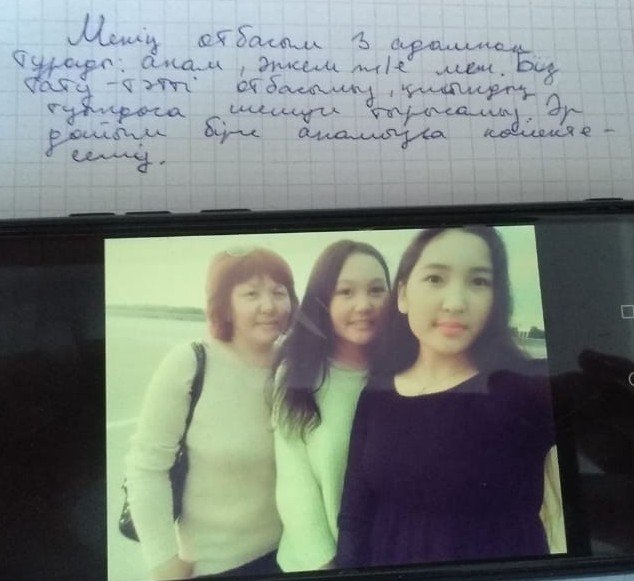 Менің отбасым 3 адамнан
тұрады: анам, әпкем ж/е мен. Біз
тату-тәтті отбасымыз, қиындық
туындаса шешуге тырысамыз. Әр
дайым бірге анамызға көмекте-
семіз.